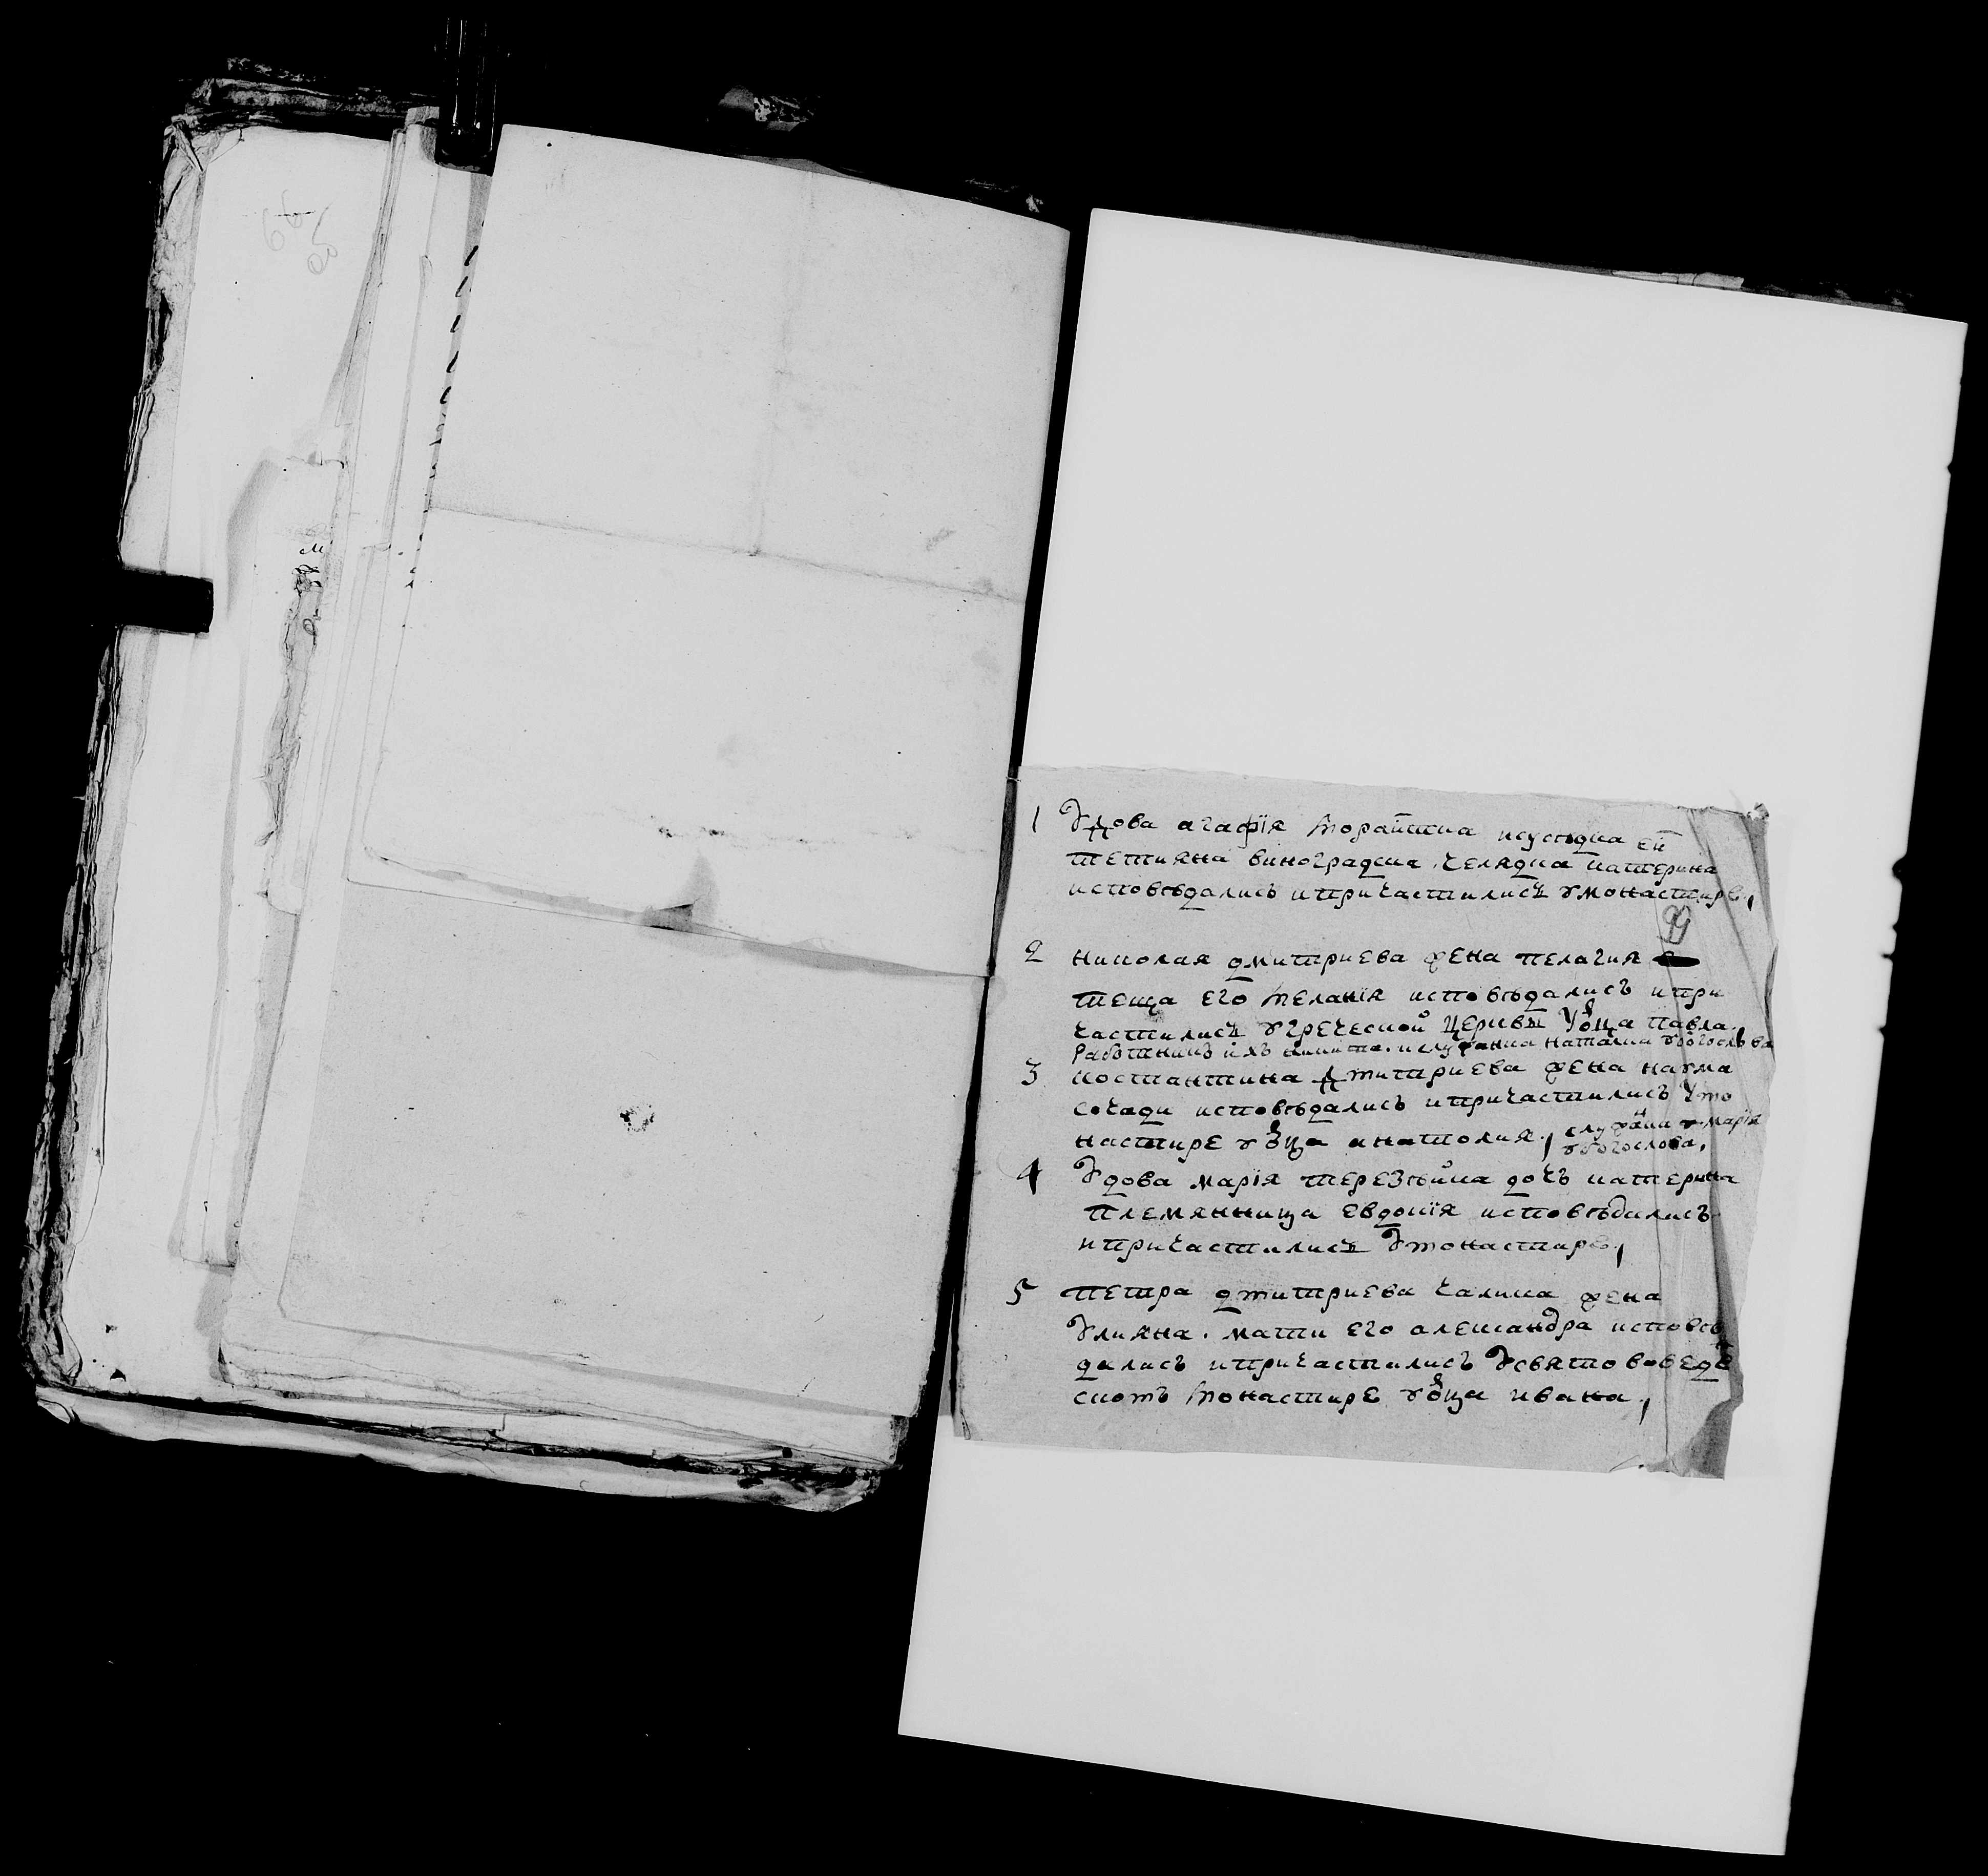 1 Удова агафїя морайтина исусѣдка ей
тетияна виноградска. челядка катерина
исповѣдались ипричастились умонастирѣ,
99
2 николая дмитриева жена пелагия
теща его меланїя исповѣдались ипри
частились угреческой церквы уотца павла,
работникъ ихъ никита. ислужанка наталка убогослова
3 костантина дмитриева жена наума
сочади исповѣдались ипричастились умо
настире уотца анатолия, марїя
убогослова,
4 Удова марїя терезѣйка дочъ катерина
племянница евдокїя исповѣдались
ипричастились умонастирѣ,
5 петра дмитриева чалика жена
Улияна. мати его александра исповѣ
дались ипричастились Усвятововеде
скомъ монастире уотца ивана,